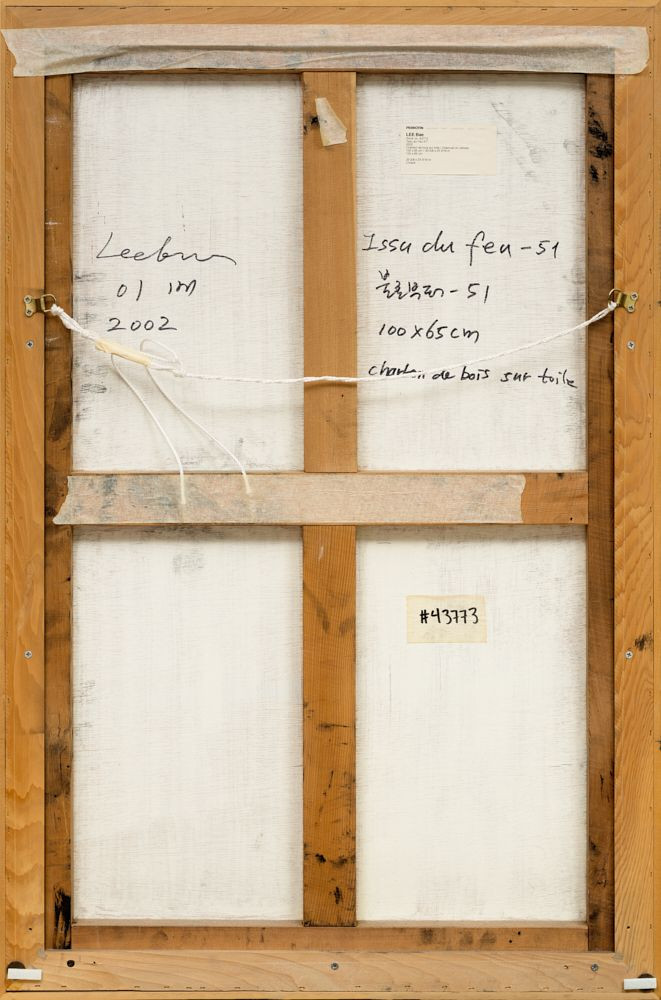 PERROTIN
LEE Bae
Leebae
이 배
2002
Issu du feu - 51
불로부터 - 51
100 x 65 cm
charbon de bois sur toile
#43773